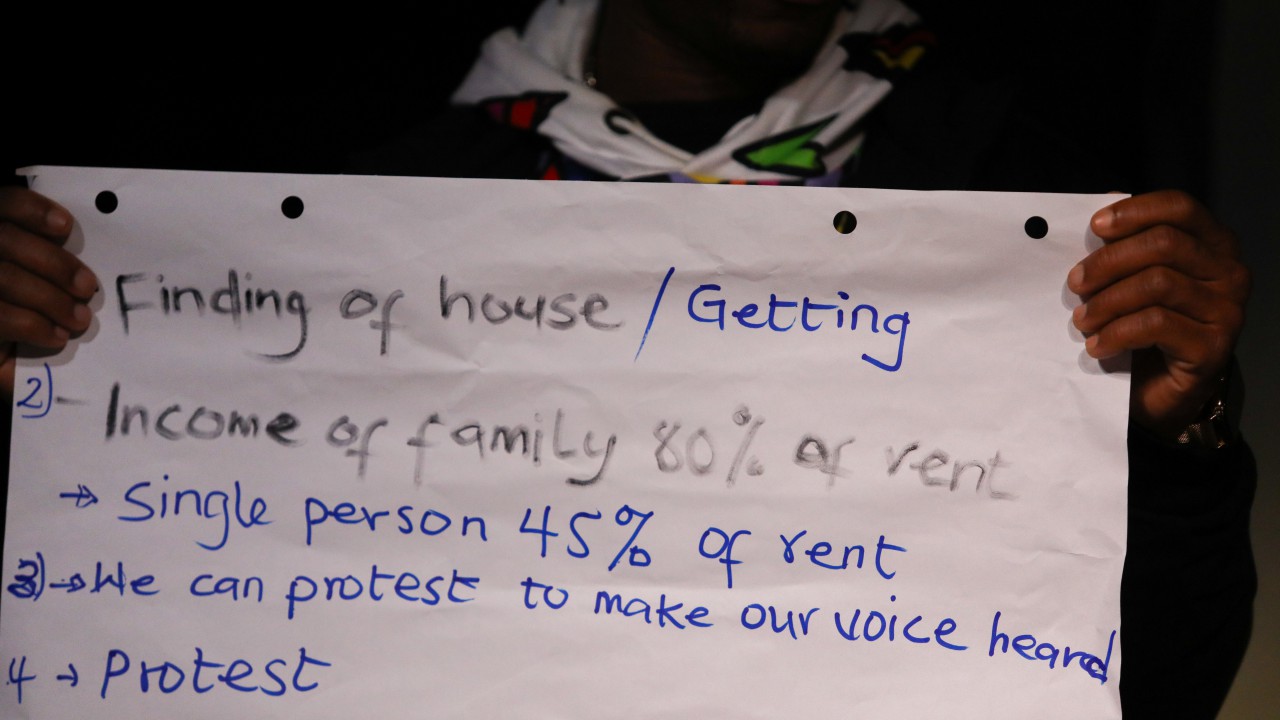 Finding of house / Getting
2)- Income of family 80% of rent
→ Single person 45% of rent
3)→ We can protest to make our voice heard
4 → Protest